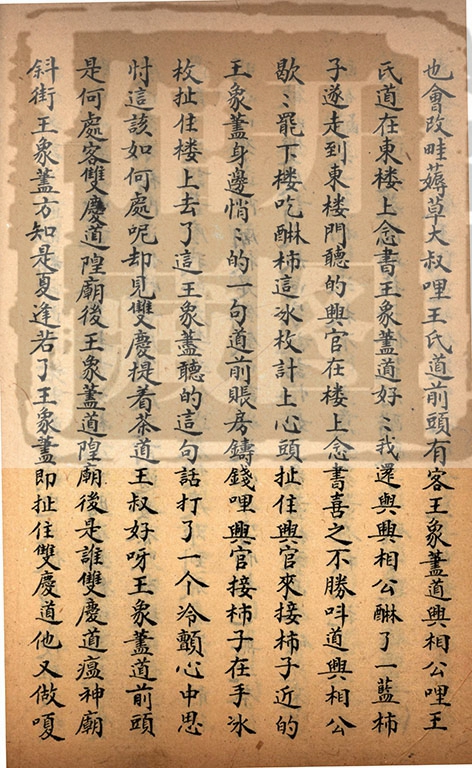 也會改畦薅草大叔哩王氏道前頭有客王象蓋道興相公哩王
氏道在東楼上念書王象蓋道好〻我還與興相公醂了一藍柿
子遂走到東楼門聽的興官在楼上念書喜之不勝呌道興相公
歇〻罷下楼吃醂柿這冰枚計上心頭扯住興官來接柿子近的
王象蓋身邊悄〻的一句道前賬房鑄錢哩興官接柿子在手冰
枚扯住楼上去了這王象蓋聽的這句話打了一个冷顫心中思
忖這該如何處呢却見雙慶提着茶道王叔好呀王象蓋道前頭
是何處客雙慶道隍廟後王象蓋道隍廟後是誰雙慶道瘟神廟
斜街王象蓋方知是夏逢若了王象蓋即扯住雙慶道他又做嗄